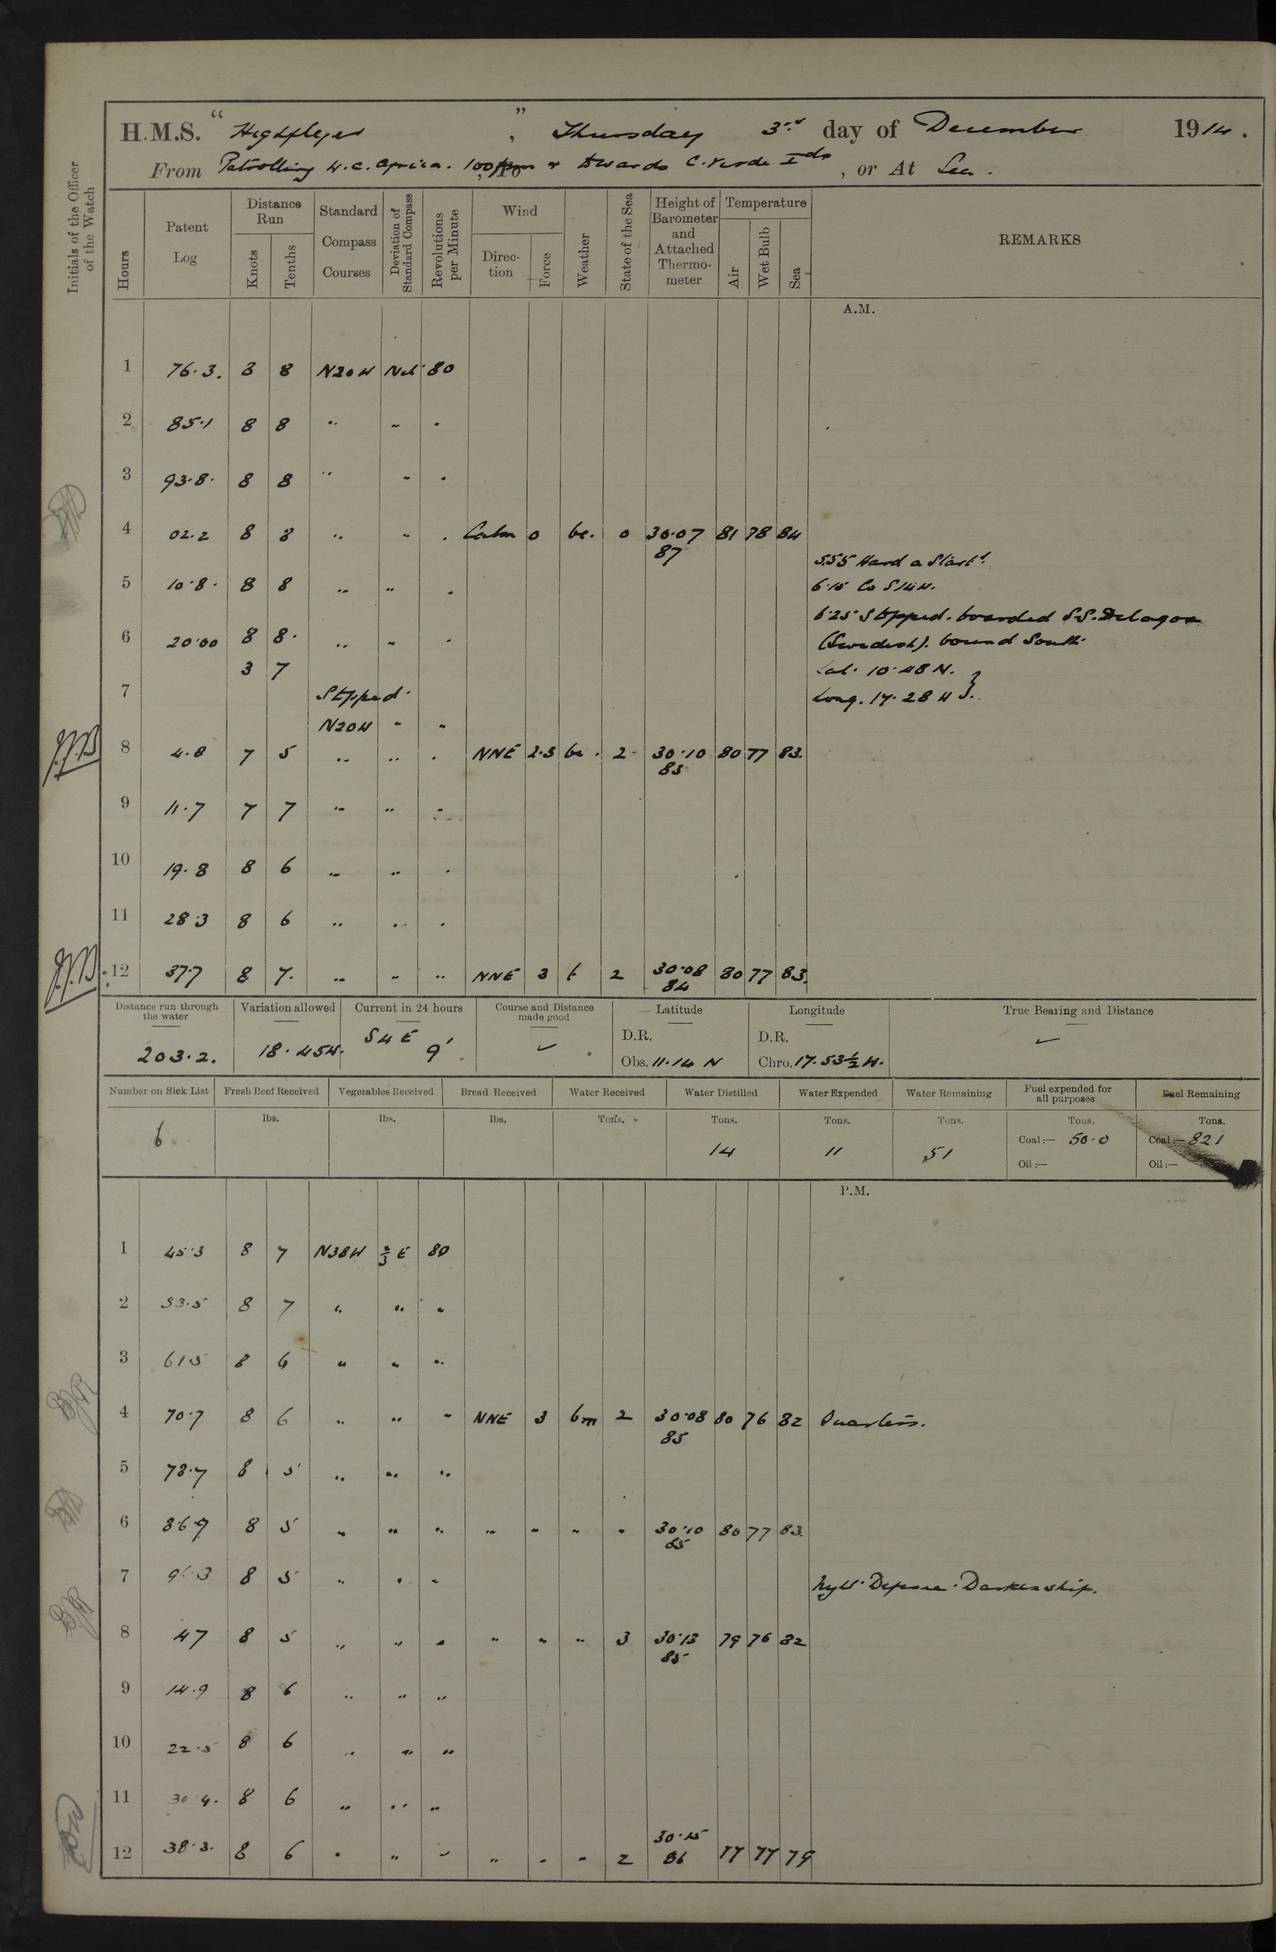 H.M.S. "Highflyer", Thursday 3rd day of December 1914.
From Patrolling W.C. Africa. & towards C. Verde Ids, or At Sea.
Initials of the Officer of the Watch
Hours
Patent Log
Distance Run
Knots Tenths
Standard Compass Courses
Deviation of Standard Compass
Revolutions per Minute
Wind
Direction Force
Weather
State of the Sea
Height of Barometer and Attached Thermometer
Temperature
Air Wet Bulb Sea
REMARKS
A.M.
1 76.3. 8 8 N20W Nil 80
2 85.1 8 8 " " "
3 93.8. 8 8 " " "
4 02.2 8 8 " " " Calm 0 bc. 0 30.07 81 78 84
87
5.55 Hard a Starbd.
5 10.8. 8 8 " " "
6.15 Co S14W.
6.25 Stopped. boarded S.S. Delagoa
6 20.00 8 8. " " "
(Swedish). bound South.
3 7
Lat. 10.48 N.
7 Stopped.
Long. 17.28 W
N20W " "
8 4.8 7 5 " " " NNE 2.3 bc. 2 30.10 80 77 83.
85
9 11.7 7 7 " " "
10 19.8 8 6 " " "
11 28.3 8 6 " " "
12 37.7 8 7. " " " NNE 3 b 2 30.08 80 77 83.
84
J.J.B
J.J.B
Distance run through the water 203.2.
Variation allowed 18.45W.
Current in 24 hours S4E 9'
Course and Distance made good ✓
Latitude
D.R.
Obs. 11.14 N
Longitude
D.R.
Chro. 17.53½ W.
True Bearing and Distance ✓
Number on Sick List Fresh Beef Received Vegetables Received Bread Received Water Received Water Distilled Water Expended Water Remaining Fuel expended for all purposes Fuel Remaining
lbs. lbs. lbs. Tons. Tons. Tons. Tons. Tons. Tons.
6 14 11 51 Coal:— 50.0 Coal:— 821
Oil:— Oil:—
P.M.
1 45.3 8 7 N38W ⅔E 80
2 53.5 8 7 " " "
3 61.5 8 6 " " "
4 70.7 8 6 " " " NNE 3 bm 2 30.08 80 76 82 Quarters.
85
5 78.7 8 5 " " "
6 86.9 8 5 " " " " " " " 30.10 80 77 83.
85
7 8 5 " " "
Night Defence. Darken ship.
8 4.7 8 5 " " " " " " 3 30.13 79 76 82
85
9 14.9 8 6 " " "
10 22.5 8 6 " " "
11 30.4. 8 6 " " "
12 38.3. 8 6 " " " " " " 2 30.15 77 77 79
86